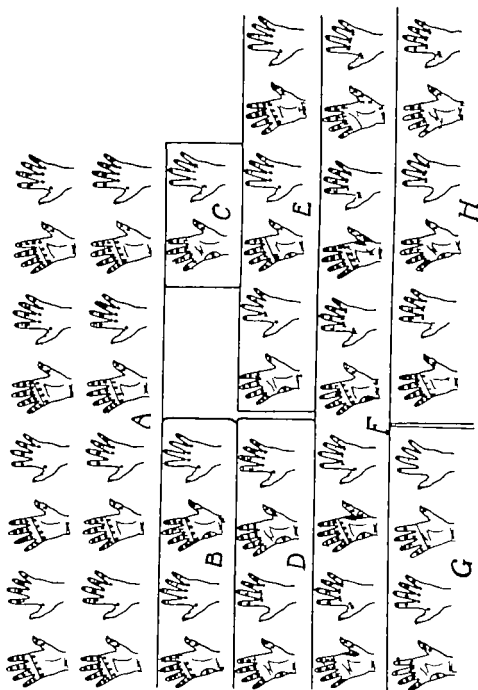 A
B
C
D
E
F
G
H